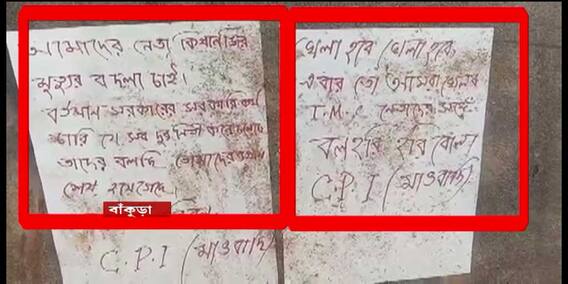 আমাদের নেতা কিষানজির
মৃত্যুর বদলা চাই।
বর্তমান সরকারের সরকারি কর্ম
চারি যে সব দুর্নীতি করে চলেছে
তাদের বলছি তোমাদের
শেষ হয়ে গেছে।
C.P.I (মাওবাদি)
খেলা হবে খেলা হবে
এবার তো আমরা খেলব
T.M.C নেতাদের সঙ্গে
বল হরি হরি বোল
C.P.I (মাওবাদি)
বাঁকুড়া